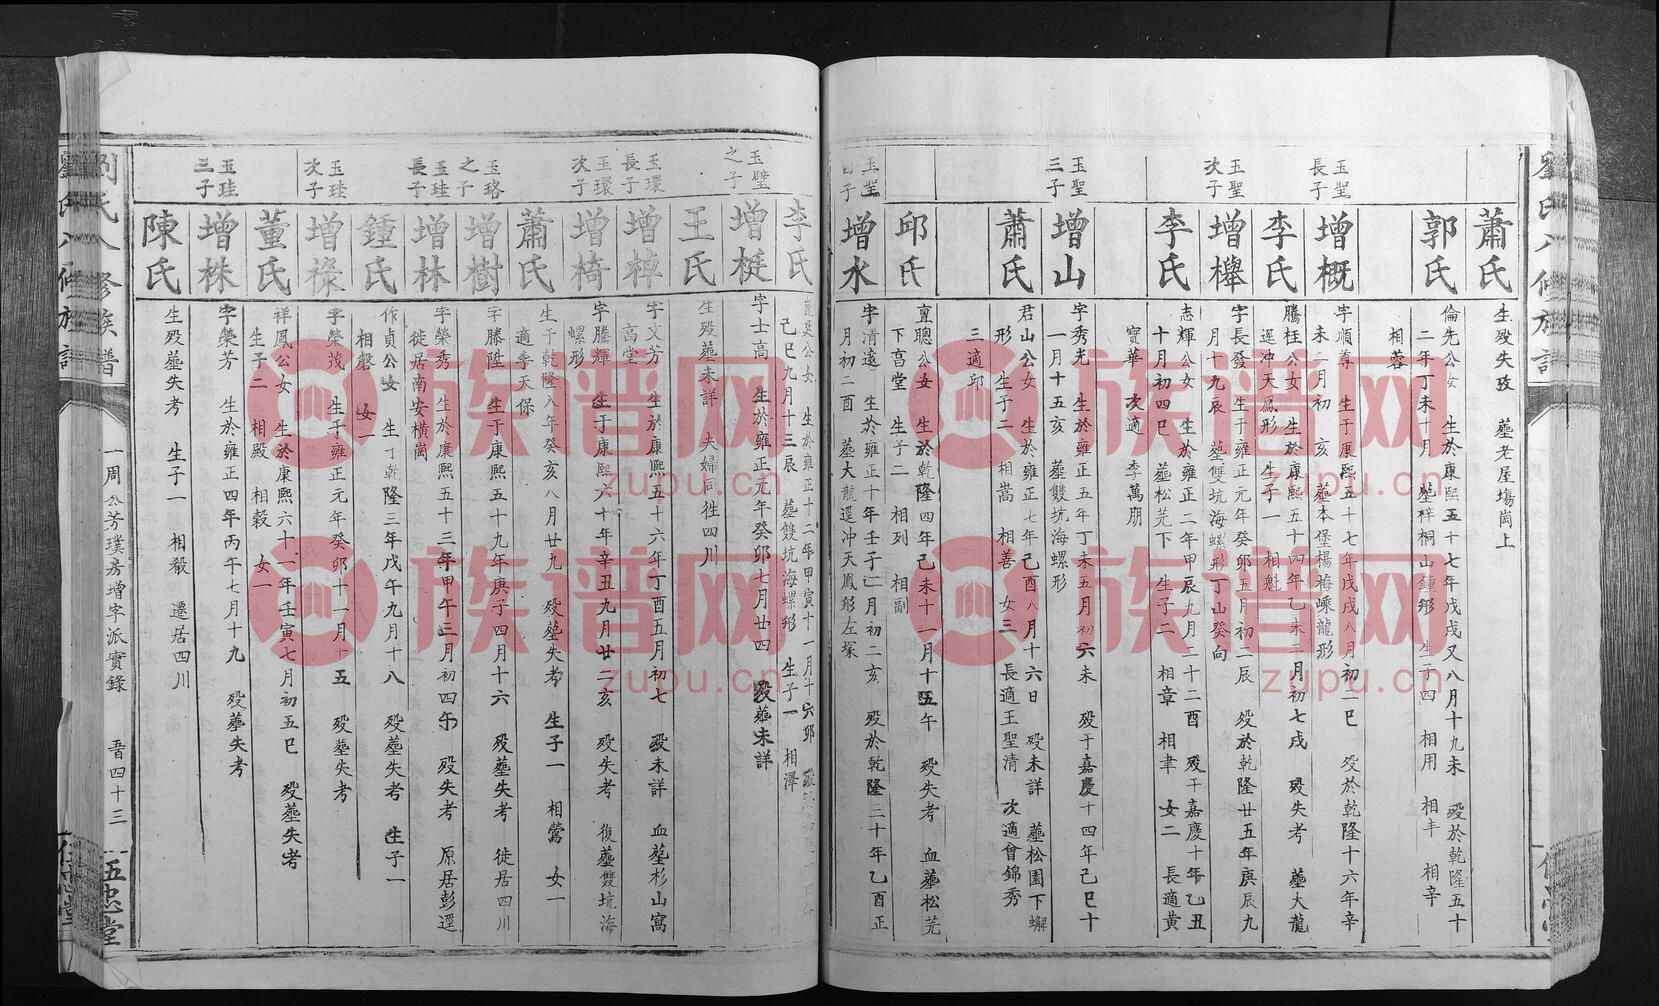 蕭氏
生殁失攷 葬老屋塲崗上
郭氏
倫先公女 生於康熙五十七年戊戌又八月十九未 殁於乾隆五十
二年丁未十月 葬梓桐山鍾形 生子四 相用 相丰 相辛
相蓉
玉聖長子
增概
字順尊 生于康熙五十七年戊戌八月初二巳 殁於乾隆十六年辛
未二月初 亥 葬本堡楊梅嵊龍形
李氏
騰枉公女 生於康熙五十四年乙未二月初七戌 殁失考 葬大龍
逕冲天鳳形 生子一 相魁
玉聖次子
增櫸
字長發 生于雍正元年癸卯五月初二辰 殁於乾隆廿五年庚辰九
月十九辰 葬雙坑海螺形丁山癸向
李氏
志輝公女 生於雍正二年甲辰九月二十二酉 殁于嘉慶十年乙丑
十月初四巳 葬松芫下 生子二 相章 相聿 女二 長適黄
寶華 次適 李萬朋
玉聖三子
增山
字秀光 生於雍正五年丁未五月初六未 殁于嘉慶十四年己巳十
一月十五亥 葬雙坑海螺形
蕭氏
君山公女 生於雍正七年己酉八月十六日 殁未詳 葬松園下蠏
形 生子二 相嵩 相善 女三 長適王聖清 次適會錦秀
三適邱
邱氏
稟聰公女 生於乾隆四年己未十一月十五午 殁失考 血葬松芫
下亯堂 生子二 相列 相副
增水
字清遠 生於雍正十年壬子二月初二亥 殁於乾隆三十年乙酉正
月初二酉 葬大龍逕冲天鳳形左塚
李氏
己巳九月十三辰 葬雙坑海螺形 生子一 相澤
玉璧之子
增梃
字士高 生於雍正元年癸卯七月廿四 殁葬未詳
王氏
生殁葬未詳 夫婦同徃四川
玉環長子
增樟
字文芳 生於康熙五十六年丁酉五月初七 殁未詳 血葬杉山窩
高堂
玉環次子
增椅
字騰輝 生于康熙六十年辛丑九月廿二亥 殁失考 復葬雙坑海
螺形
蕭氏
生于乾隆八年癸亥八月廿九 殁葬失考 生子一 相鶯 女一
適季天保
玉珞之子
增樹
字騰陞 生于康熙五十九年庚子四月十六 殁葬失考 徙居四川
玉珪長子
增林
字榮秀 生於康熙五十三年甲午三月初四午 殁失考 原居彭逕
徙居南安横崗
鍾氏
作貞公女 生丁乾隆三年戊午九月十八 殁葬失考 生子一
相磬 女一
玉珪次子
增祿
字榮茂 生于雍正元年癸卯十一月十五 殁葬失考
董氏
祥鳳公女 生於康熙六十一年壬寅七月初五巳 殁葬失考
生子二 相殿 相穀 女一
玉珪三子
增株
字榮芳 生於雍正四年丙午七月十九 殁葬失考
陳氏
生殁葬失考 生子一 相毅 遷居四川
劉氏八修族譜
一周公芳璞房增字派實錄
吾四十三
伍忠堂
族谱网
zupu.cn
族谱网
zupu.cn
族谱网
zupu.cn
族谱网
zupu.cn